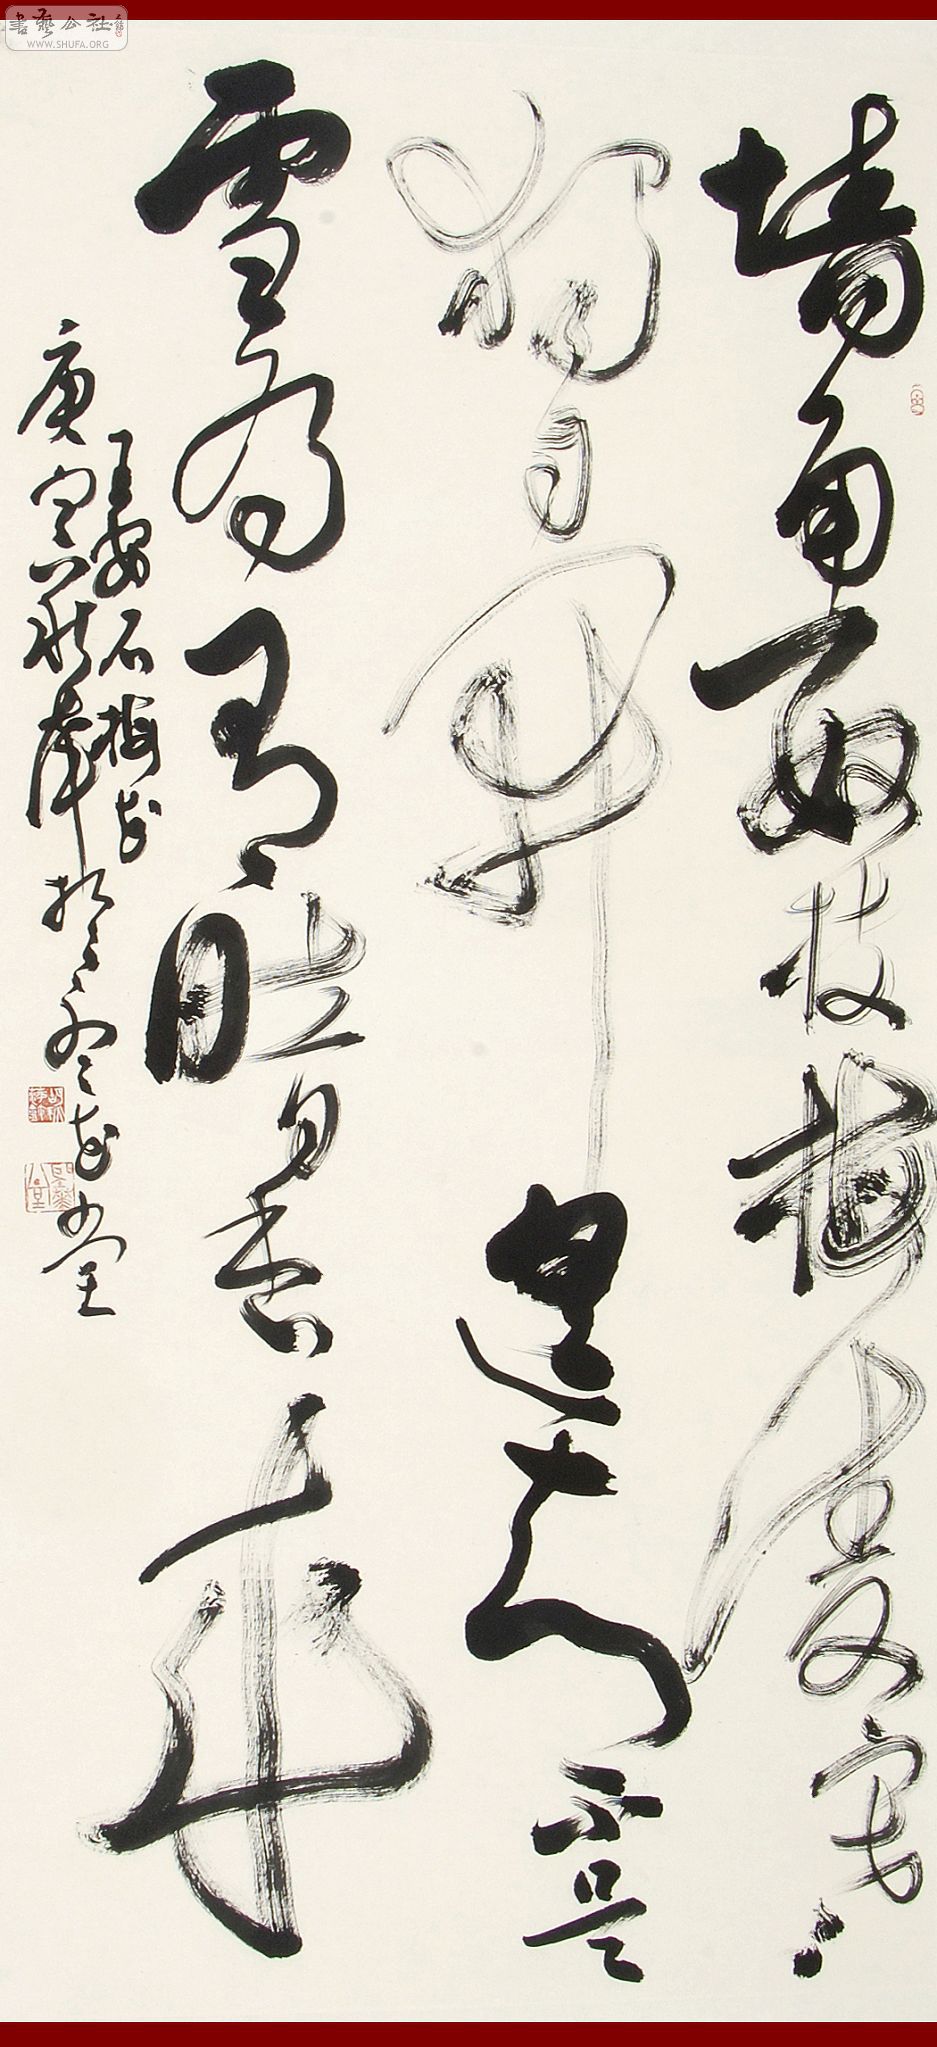 書藝公社
WWW.SHUFA.ORG
墙角数枝梅凌寒
独自开遥知不是
雪为有暗香来
王安石梅花
庚寅秋萍于堂